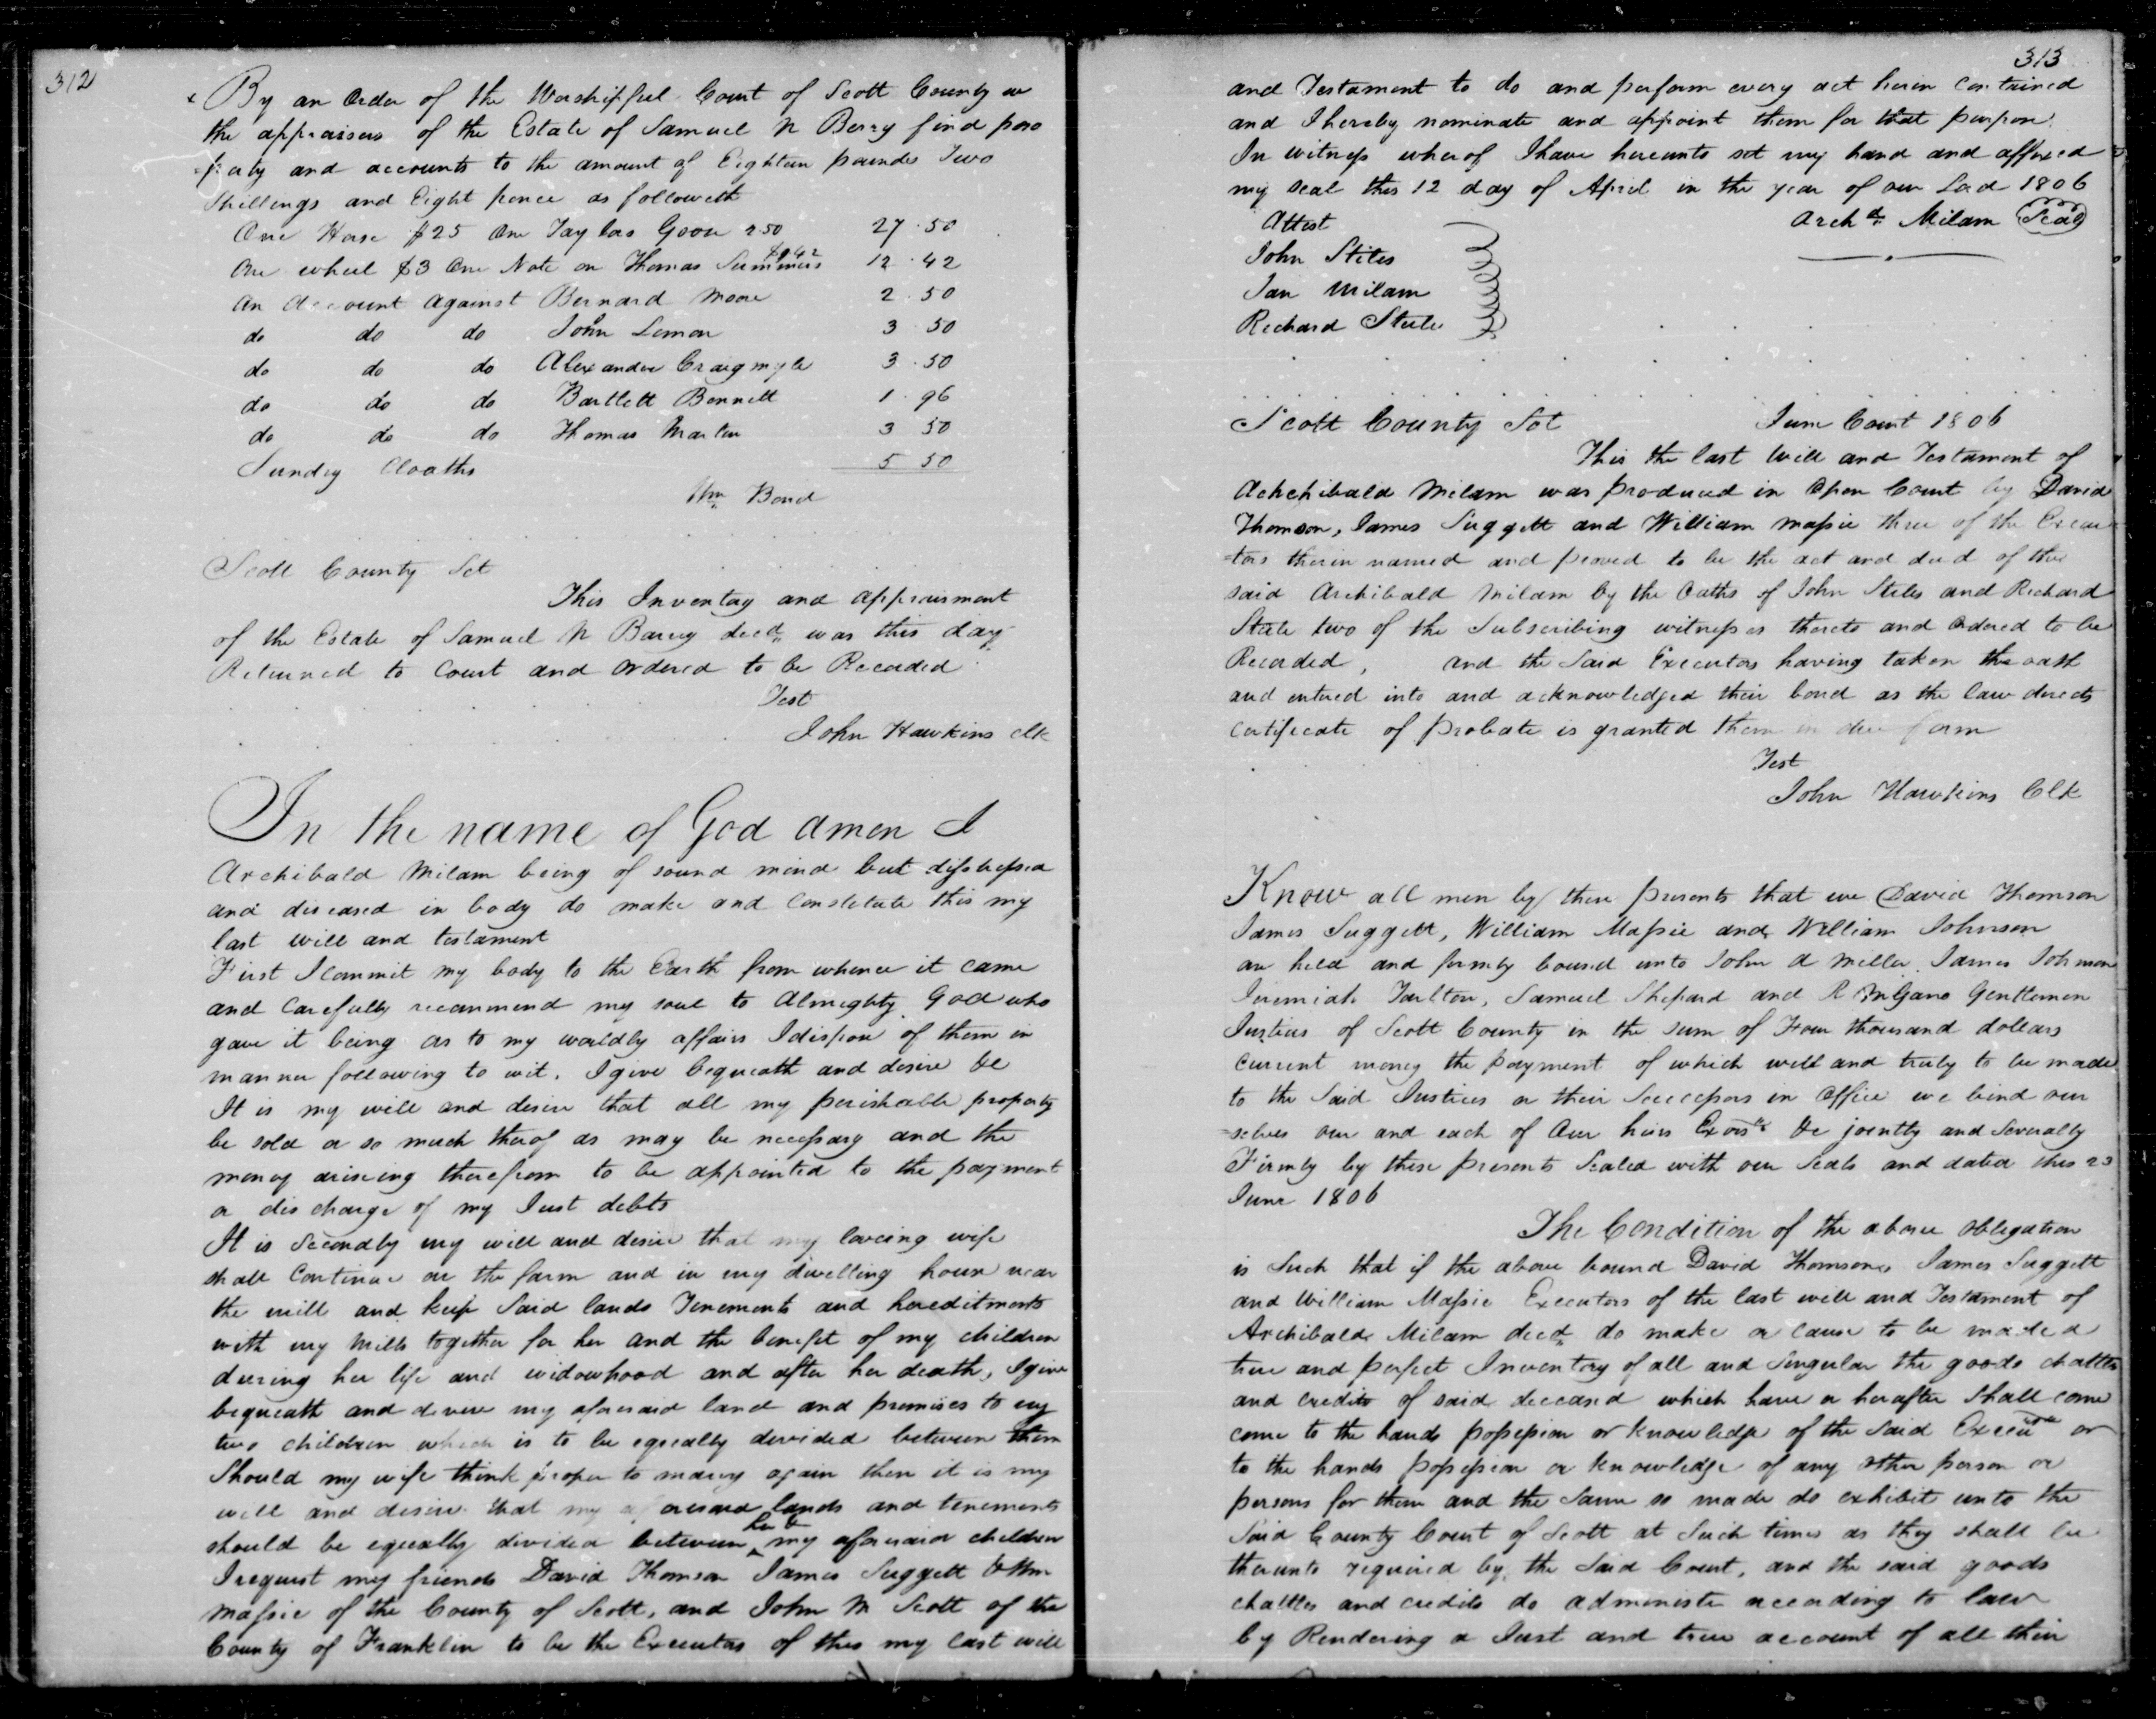 312
By an Order of the Worshipful Court of Scott County we
the appraisers of the Estate of Samuel N Berry find pro
=perty and accounts to the amount of Eighteen pounds Two
Shillings and Eight pence as followeth
One Horse $25 One Taylors Goose 2.50 27.50
One wheel $3 One Note on Thomas Summers $9.42 12.42
An Account against Bernard Moore 2.50
do do do John Lemon 3.50
do do do Alexander Craigmyle 3.50
do do do Bartlett Bennett 1.96
do do do Thomas Martin 3 50
Sundry Cloaths 5 50
Wm Bond
Scott County Sct
This Inventory and appraisment
of the Estate of Samuel N Barry decd. was this day
Returned to Court and ordered to be Recorded
Test
John Hawkins clk
In the name of God amen I
Archibald Milam being of sound mind but distressed
and diseased in body do make and Constitute this my
last will and testament
First I commit my body to the Earth from whence it came
and Carefully recommend my soul to Almighty God who
gave it being as to my worldly affairs I dispose of them in
manner following to wit. I give bequeath and desire &c
It is my will and desire that all my perishable property
be sold or so much therof as may be necessary and the
money ariseing therefrom to be appointed to the payment
or discharge of my Just debts
It is Secondly my will and desire that my loveing wife
shall Continue on the farm and in my dwelling house near
the mill and keep Said lands Tenements and hereditments
with my Mills together for her and the benefit of my children
dureing her life and widowhood and after her death, I give
bequeath and devise my aforesaid land and premises to my
two children which is to be equally devided between them
Should my wife think proper to marry again then it is my
will and desire that my aforesaid lands and tenements
should be equally devided between her & my aforesaid children
I request my friends David Thomson James Suggett & Wm
Massie of the County of Scott, and John M Scott of the
County of Franklin to be the Executors of this my last will
313
and Testament to do and perform every act herein contained
and I hereby nominate and appoint them for that purpose.
In witness wherof I have hereunto set my hand and affixed
my seal this 12 day of April in the year of our Lord 1806
Attest Archd. Milam Seal
John Stites
Jan Milam
Richard Steele
Scott County Sct June Court 1806
This the last Will and Testament of
Achchibald Milam was produced in Open Court by David
Thomson, James Suggett and William Massie three of the Execu
=tors therin named and proved to be the act and deed of the
said Archibald Milam by the Oaths of John Stites and Richard
Steele two of the Subscribing witnesses thereto and Ordered to be
Recorded, and the Said Executors having taken the oath
and entered into and acknowledged their bond as the law directs
Certificate of Probate is granted them in due form
Test
John Hawkins Clk
Know all men by these presents that we David Thomson
James Suggett, William Massie and William Johnson
are held and firmly bound unto John A Miller James Johnson
Jeremiah Tarlton, Samuel Shepard and R M Gano Gentlemen
Justices of Scott County in the sum of Four thousand dollars
current money the payment of which well and truly to be made
to the Said Justices or their Successors in Office we bind our
=selves our and each of Our heirs Exors &c jointly and Severally
Firmly by these presents Sealed with our Seals and dated this 23
June 1806
The Condition of the above Obligation
is Such that if the above bound David Thomson, James Suggett
and William Massie Executors of the last will and Testament of
Archibald Milam decd. do make or Cause to be made a
true and perfect Inventory of all and Singular the goods chattles
and credits of said deceased which have or herafter shall come
come to the hands possession or knowledge of the Said Execu or
to the hands possession or knowledge of any other person or
persons for them and the Same so made do exhibit unto the
Said County Court of Scott at Such times as they shall be
therunto required by the Said Court, and the said goods
chattles and credits do administer according to law
by Rendering a Just and true account of all their